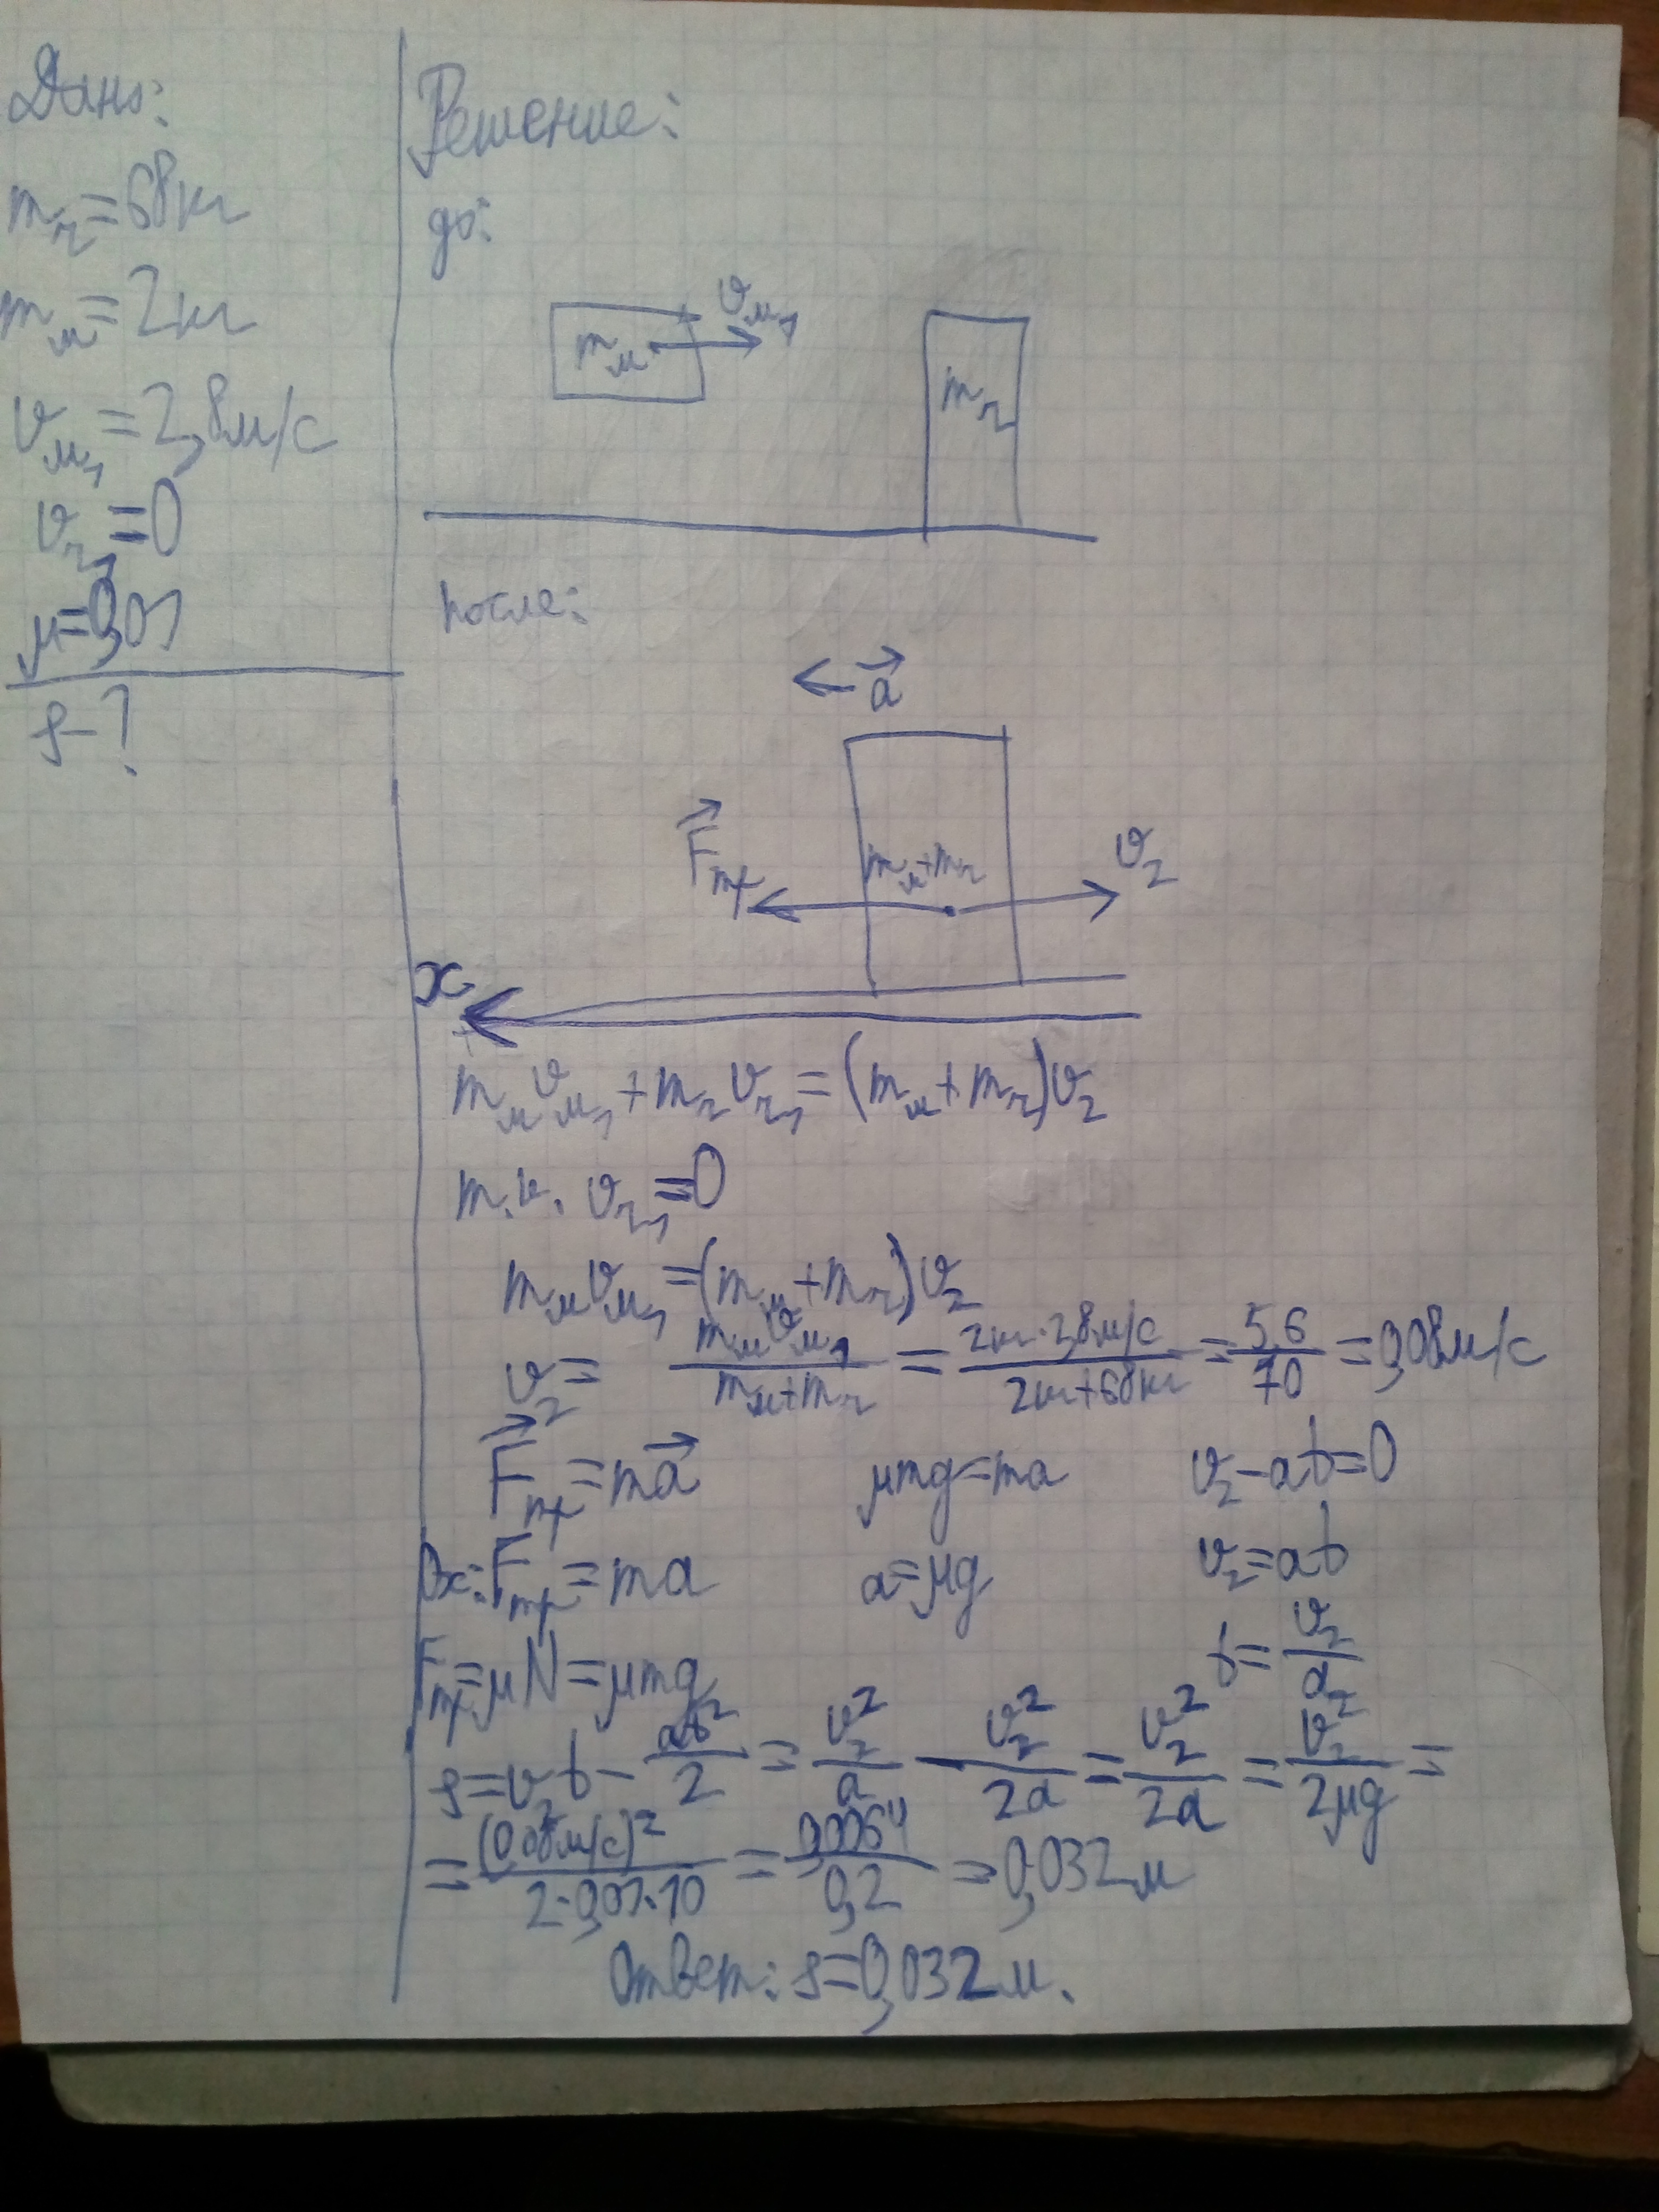 Дано:
mч=68кг
mм=2кг
vм1=2,8м/с
vч1=0
μ=0,01
s-?
Решение:
до:
mм vм1 mч
после:
a
Fтр mм+mч v2
x
mмvм1+mчvч1=(mм+mч)v2
т.к. vч1=0
mмvм1=(mм+mч)v2
v2= mмvм1/(mм+mч) = 2кг·2,8м/с/(2кг+68кг) = 5,6/70 =0,08м/с
Fтр=ma μmg=ma v2-at=0
Ox: Fтр=ma a=μg v2=at
Fтр=μN=μmg t=v2/a
s=v2t-at²/2=v2²/a-v2²/2a=v2²/2a=v2²/2μg=
=(0,08м/с)²/2·0,01·10=0,0064/0,2=0,032м
Ответ: s=0,032м.